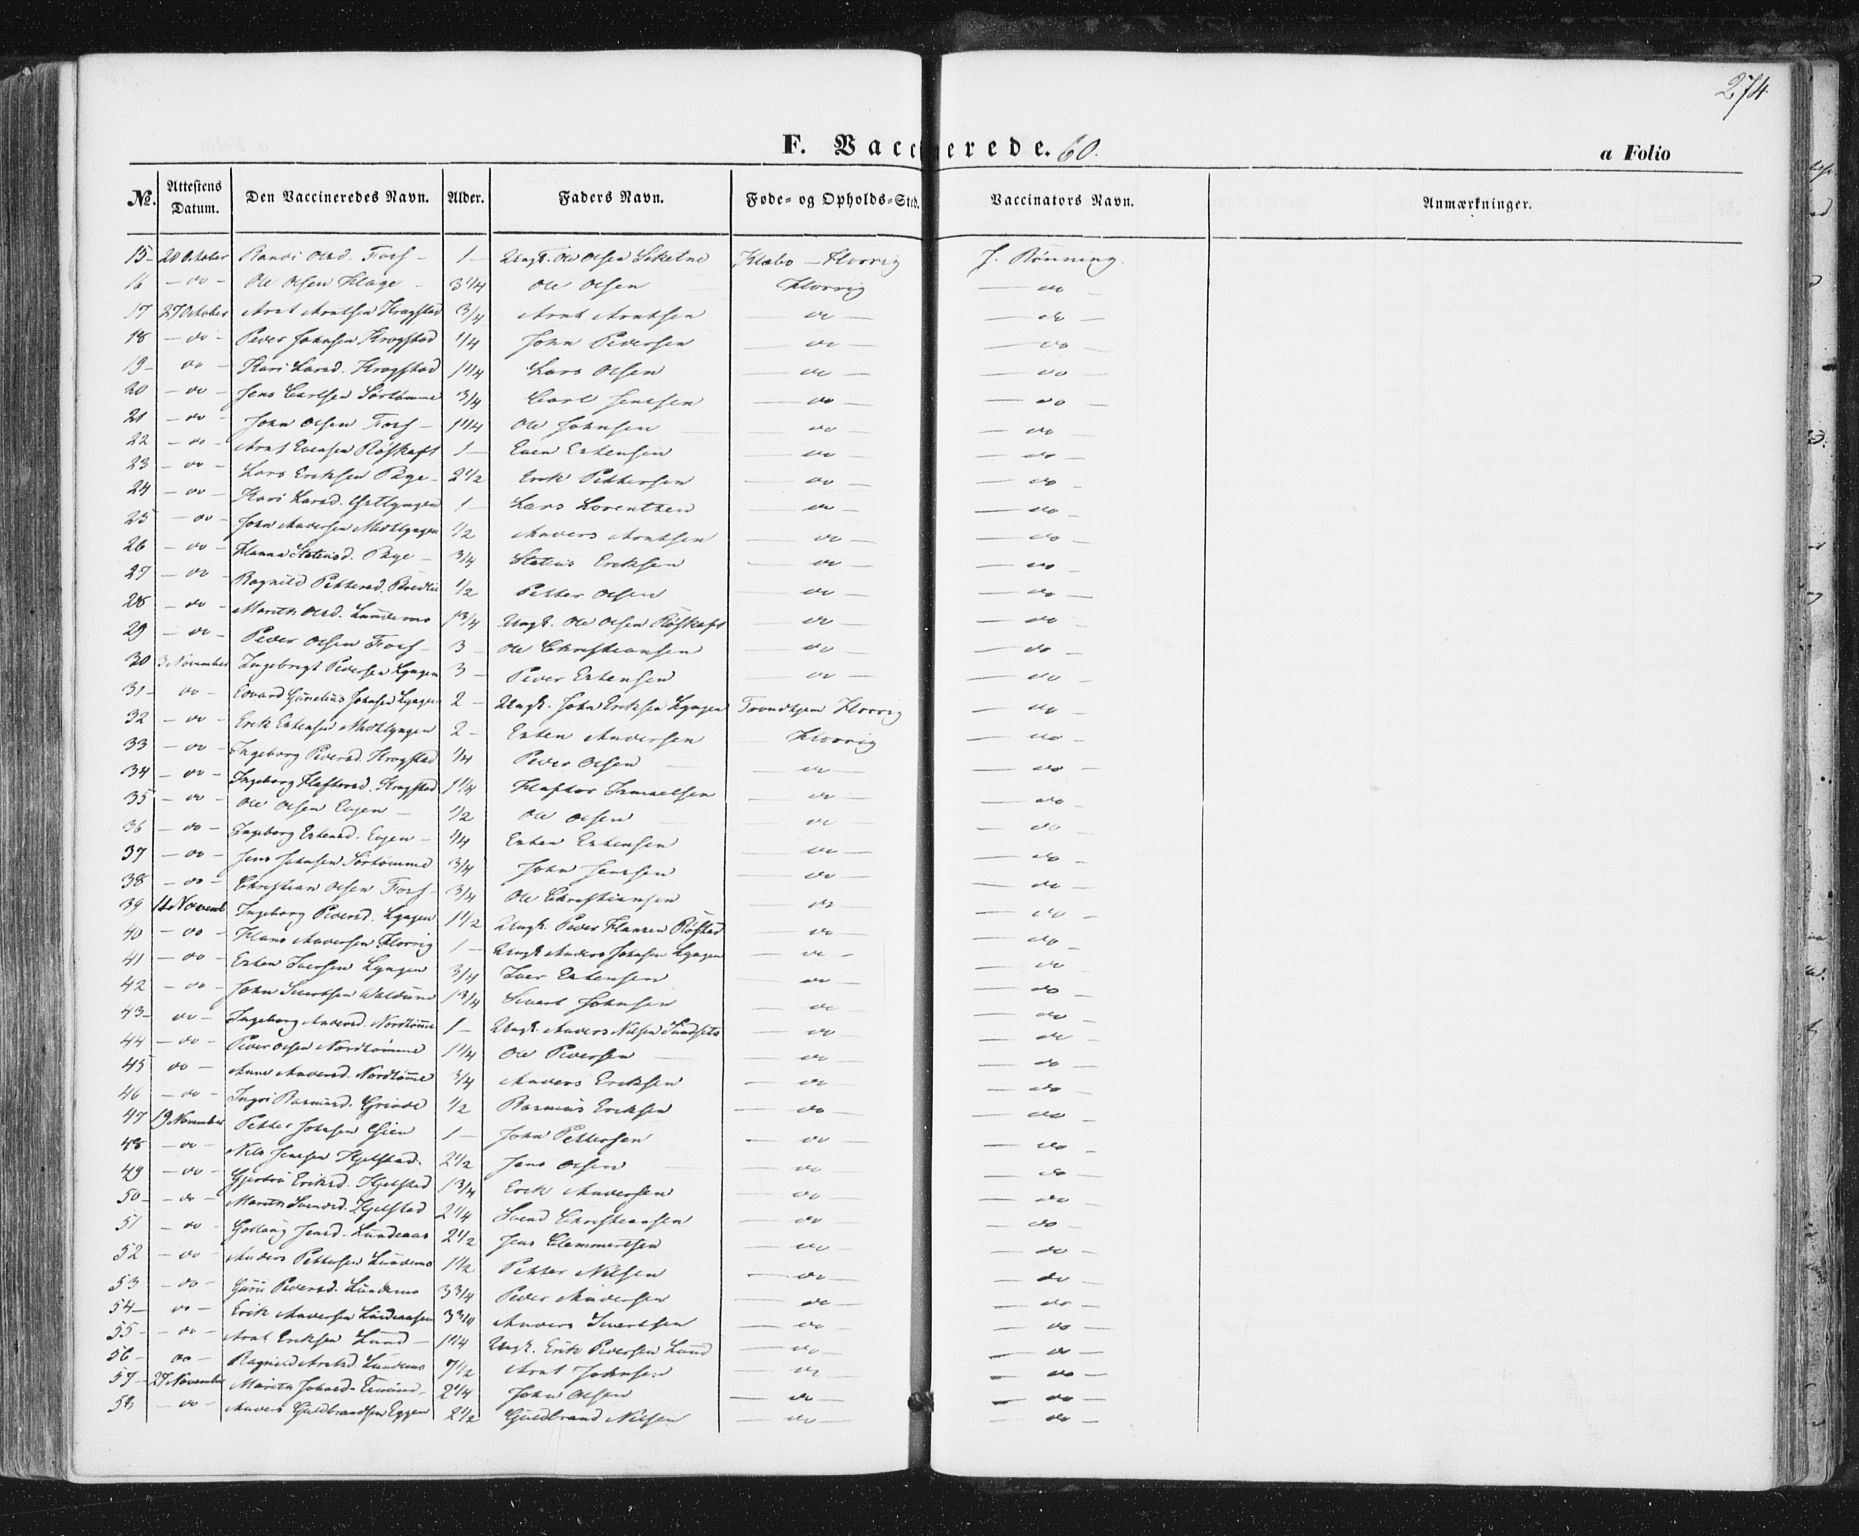 274
F. Vaccinerede. 60.
a Folio
No. Attestens Datum. Den Vaccineredes Navn. Alder. Faders Navn. Føde- og Opholds-Sted. Vaccinators Navn. Anmærkninger.
15 - 20 October Randi Olsd. Foss - 1 - Ungk. Ole Olsen Klæbo - Flovrig J. Rönning.
16 - do - Ole Olsen 3 1/4 Ole Olsen Flovrig - do -
17 27 October Arnt Arntsen Krogstad 3/4 Arnt Arntsen - do - - do -
18 - do - Peder Johnsen Krogstad 1/4 John Pedersen - do - - do -
19 - do - Kari Larsd. Krogstad 1 1/4 Lars Olsen - do - - do -
20 - do - Jens Carlsen Sörtömme 3/4 Carl Jensen - do - - do -
21 - do - John Olsen Foss - 1 1/4 Ole Johnsen - do - - do -
22 - do - Arnt Evensen Röskaft 1 - Even Estensen - do - - do -
23 - do - Lars Eriksen Rye - 2 1/2 Erik Pettersen - do - - do -
24 - do - Kari Larsd. 1 - Lars Lorentzen - do - - do -
25 - do - John Andersen Midtlyngen 1/2 Anders Arntsen - do - - do -
26 - do - Hanna Statiusd. Rye - 3/4 Statius Eriksen - do - - do -
27 - do - Ragnild Pettersd. Bredli 1/2 Petter Olsen - do - - do -
28 - do - Marith Olsd. Lundemo 1 3/4 Ungk. Ole Olsen Röskaft - do - - do -
29 - do - Peder Olsen Foss - 3 - Ole Christiansen - do - - do -
30 3 November Ingebrigt Pedersen Lyngen 3 - Peder Estensen - do - - do -
31 - do - Edvard Johnsen Lyngen 2 - Ungk. John Eriksen Lyngen Trondhjem Flovrig - do -
32 - do - Erik Estensen Midtlyngen 2 - Esten Andersen Flovrig - do -
33 - do - Ingeborg Pedersd. Krogstad 1/4 Peder Olsen - do - - do -
34 - do - Ingeborg Haftorsd. Krogstad 1 1/4 Haftor Ismaelsen - do - - do -
35 - do - Ole Olsen Eggen - 1/2 Ole Olsen - do - - do -
36 - do - Ingeborg Estensd. Eggen - 1/4 Esten Estensen - do - - do -
37 - do - Jens Johnsen Sörtömme 3/4 John Jensen - do - - do -
38 - do - Christian Olsen Foss - 3/4 Ole Christiansen - do - - do -
39 Novemb Ingeborg Pedersd. Lyngen 1 1/2 Ungk. Peder Hansen Röstad - do - - do -
40 - do - Hans Andersen Flovrig 1 - Ungk. Anders Johnsen Lyngen - do - - do -
41 - do - Esten Iversen Lyngen 3/4 Iver Estensen - do - - do -
42 - do - John Sivertsen 1 3/4 Sivert Johnsen - do - - do -
43 - do - Ingeborg Andersd. Nordtömme 1 - Ungk. Anders Nilsen - do - - do -
44 - do - Peder Olsen Nordtömme 1 1/4 Ole Pedersen - do - - do -
45 - do - Anne Andersd. Nordtömme 3/4 Anders Eriksen - do - - do -
46 - do - Ingri Rasmusd. Grinde 1/2 Rasmus Eriksen - do - - do -
47 19 November Petter Johnsen 1 - John Pettersen - do - - do -
48 - do - Nils Jensen Hjelstad. 2 1/2 Jens Olsen - do - - do -
49 - do - Eriksd. Hjelstad 1 3/4 Erik Andersen - do - - do -
50 - do - Marith Svendsd. Hjelstad 2 1/4 Svend Christiansen - do - - do -
51 - do - Jensd. Lundeaas 2 1/2 Jens Clemmertsen - do - - do -
52 - do - Anders Pettersen Lundemo 1 1/2 Petter Nilsen - do - - do -
53 - do - Guru Pedersd. Lundemo 3 3/4 Peder Andersen - do - - do -
54 - do - Erik Andersen Lundeaasen Anders Sivertsen - do - - do -
55 - do - Arnt Eriksen Lund - 1 1/4 Ungk. Erik Pedersen Lund - do - - do -
56 - do - Ragnild Arntsd. Lundemo 7 1/2 Arnt Johnsen - do - - do -
57 - 27 November Marith Johnsd. 2 1/4 John Olsen - do - - do -
58 - do - Anders Guldbrandsen Eggen 2 1/2 Guldbrand Nilsen - do - - do -